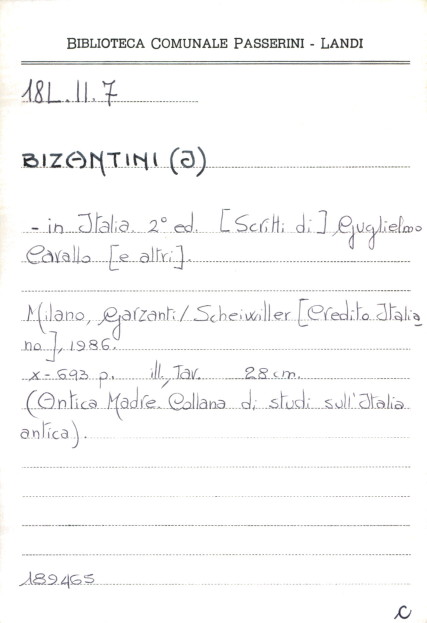 BIBLIOTECA COMUNALE PASSERINI - LANDI
18L.II.7
BIZANTINI (I)
- in Italia. 2° ed. [Scritti di] Guglielmo
Cavallo [e altri].
Milano, Garzanti/Scheiwiller [Credito Italia
no], 1986.
X-693 p. ill., Tav. 28 cm.
(Antica Madre. Collana di studi sull'Italia
antica).
189465
C